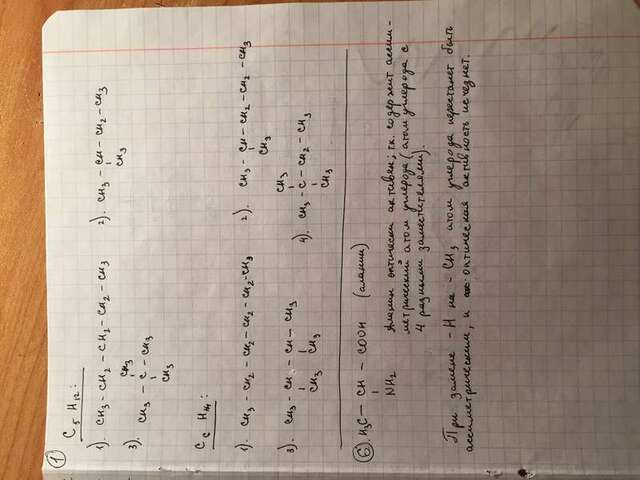 1
C5 H12:
1). CH3 - CH2 - CH2 - CH2 - CH3 2). CH3 - CH - CH2 - CH3
CH3
3). CH3
CH3 - C - CH3
CH3
C6 H14:
1). CH3 - CH2 - CH2 - CH2 - CH2 - CH3 2). CH3 - CH - CH2 - CH2 - CH3
CH3
3). CH3 - CH - CH - CH3
CH3 CH3
4). CH3
CH3 - C - CH2 - CH3
CH3
6. H3C - CH - COOH (аланин)
NH2
Аланин оптически активен; т.к. содержит ассим-
метрический атом углерода (атом углерода с
4 разными заместителями).
При замене -H на -CH3 атом углерода перестанет быть
ассиметрическим, и оптическая активность исчезнет.